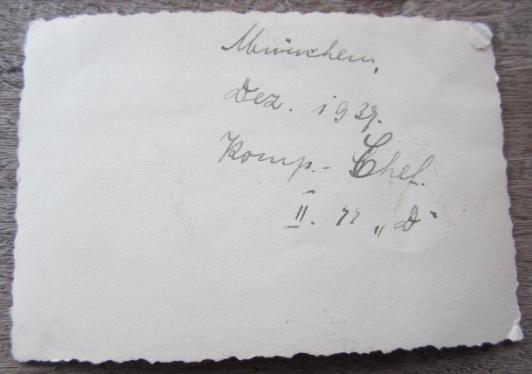 München,
Dez. 1939.
Komp.-Chef.
II. ᛋᛋ „D“